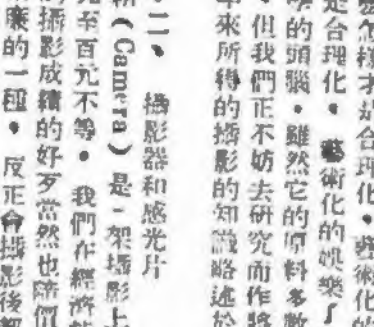 怎樣才是合理化・藝術化的
是合理化・藝術化的娛樂
的頭腦・雖然它的原料多數
・但我們正不妨去研究而作將
年來所得的攝影的知識略述於
二・攝影器和感光片
(Camera)是一架攝影上
元至百元不等・我們在經濟
攝影成績的好歹當然也隨價
廉的一種・反正會攝影後